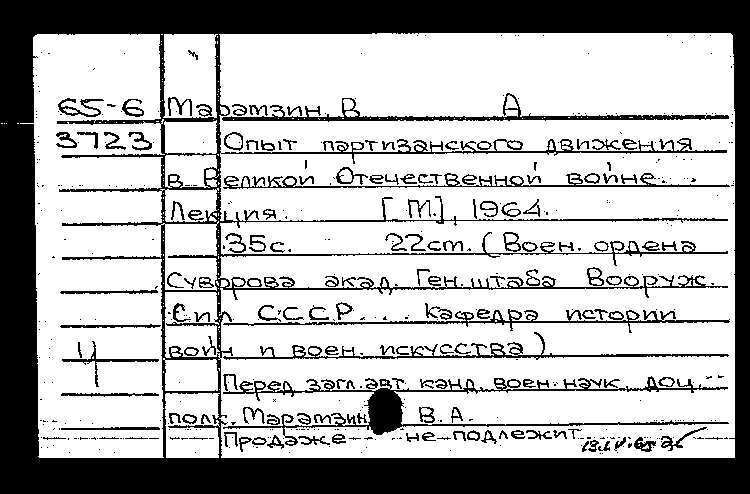 65-6 Маратзин, В А.
3723 Опыт партизанского движения
в Великой Отечественной войне.
Лекция. [М.], 1964.
35с. 22cm. (Воен. ордена
Суворова акад. Ген.штаба Вооруж.
Сил С.С.С.Р... Кафедра истории
войн и воен. искусства).
Ч
Перед загл.авт. канд. воен. наук, доц.
полк. Маратзин В.А.
Продаже не подлежит